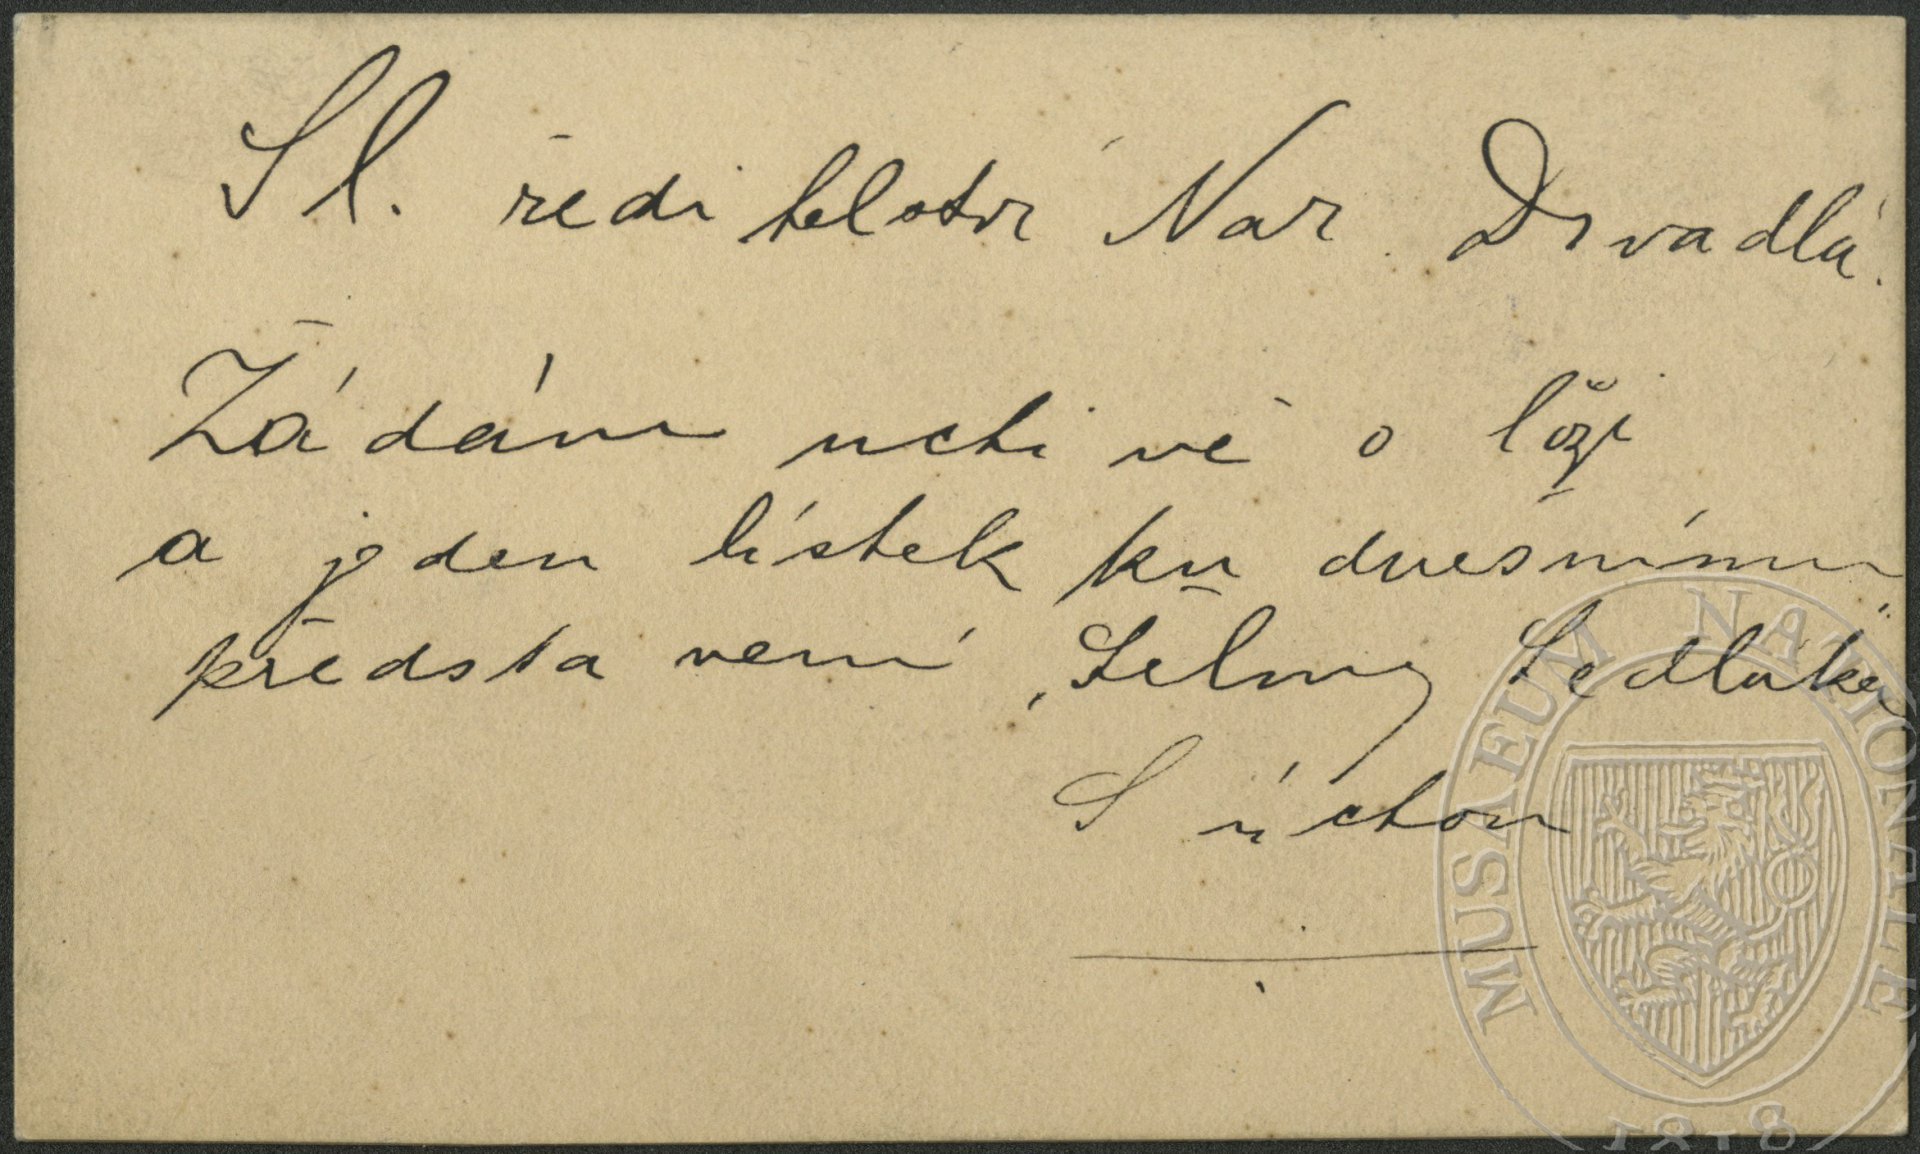 Sl. ředitelství Nar. Divadla.
Žádám uctivě o lóži
a jeden lístek ku dnesnímu
představení „Šelmy Sedláka“
S úctou
MUSAEUM NATIONALE
1818